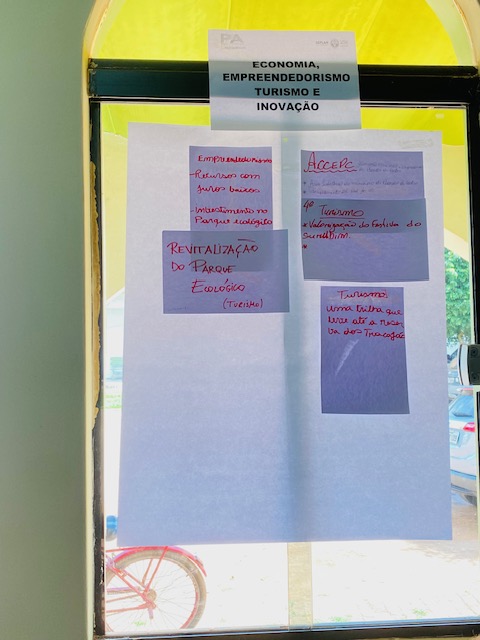 PA
ECONOMIA,
EMPREENDEDORISMO
TURISMO E
INOVAÇÃO
Empreendedorismo
- Recursos com
juros baixos
- Investimento no
Parque ecológico
REVITALIZAÇÃO
DO PARQUE
ECOLÓGICO
(TURISMO)
ACCEPC
4º Turismo
* Valorização do Festival do
Surubim.
*
Turismo
uma trilha que
leve até a reser
va dos Tracajás